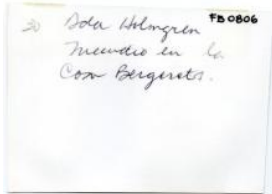 30 Ada Holmgren FB0806
Incendio en la
Casa Bergeret.